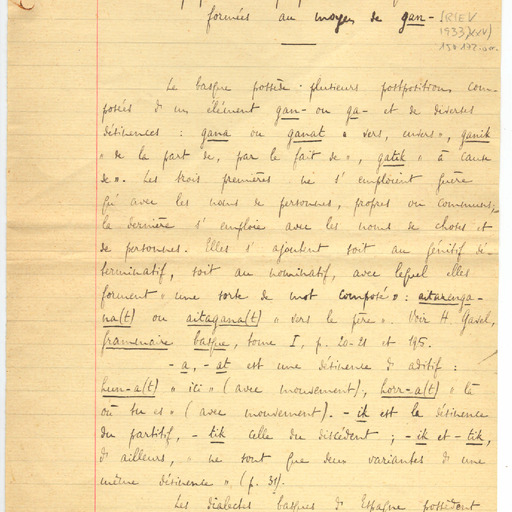 formées au moyen de gan- (RIEV
1933)XXIV)
150-172.orr.
Le basque possède plusieurs postpositions com-
posées d'un élément gan- ou ga- et de diverses
désinences : gana ou ganat « vers, envers », ganik
« de la part de, par le fait de », gatik « à cause
de ». Les trois premières ne s'emploient guère
qu'avec les noms de personnes, propres ou communs,
la dernière s'emploie avec les noms de choses et
de personnes. Elles s'ajoutent soit au génitif dé-
terminatif, soit au nominatif, avec lequel elles
forment « une sorte de mot composé » : aitarenga-
na(t) ou aitagana(t) « vers le père ». Voir H. Gavel,
Grammaire basque, tome I, p. 20-21 et 195.
- a, - at est une désinence d'aditif :
hun-a(t) « ici » (avec mouvement), horr-a(t) « là
où tu es » (avec mouvement). - ik est la désinence
du partitif, - tik celle du discédent ; - ik et - tik,
d'ailleurs, « ne sont que deux variantes d'une
même désinence », (p. 31).
Les dialectes basques d'Espagne possèdent